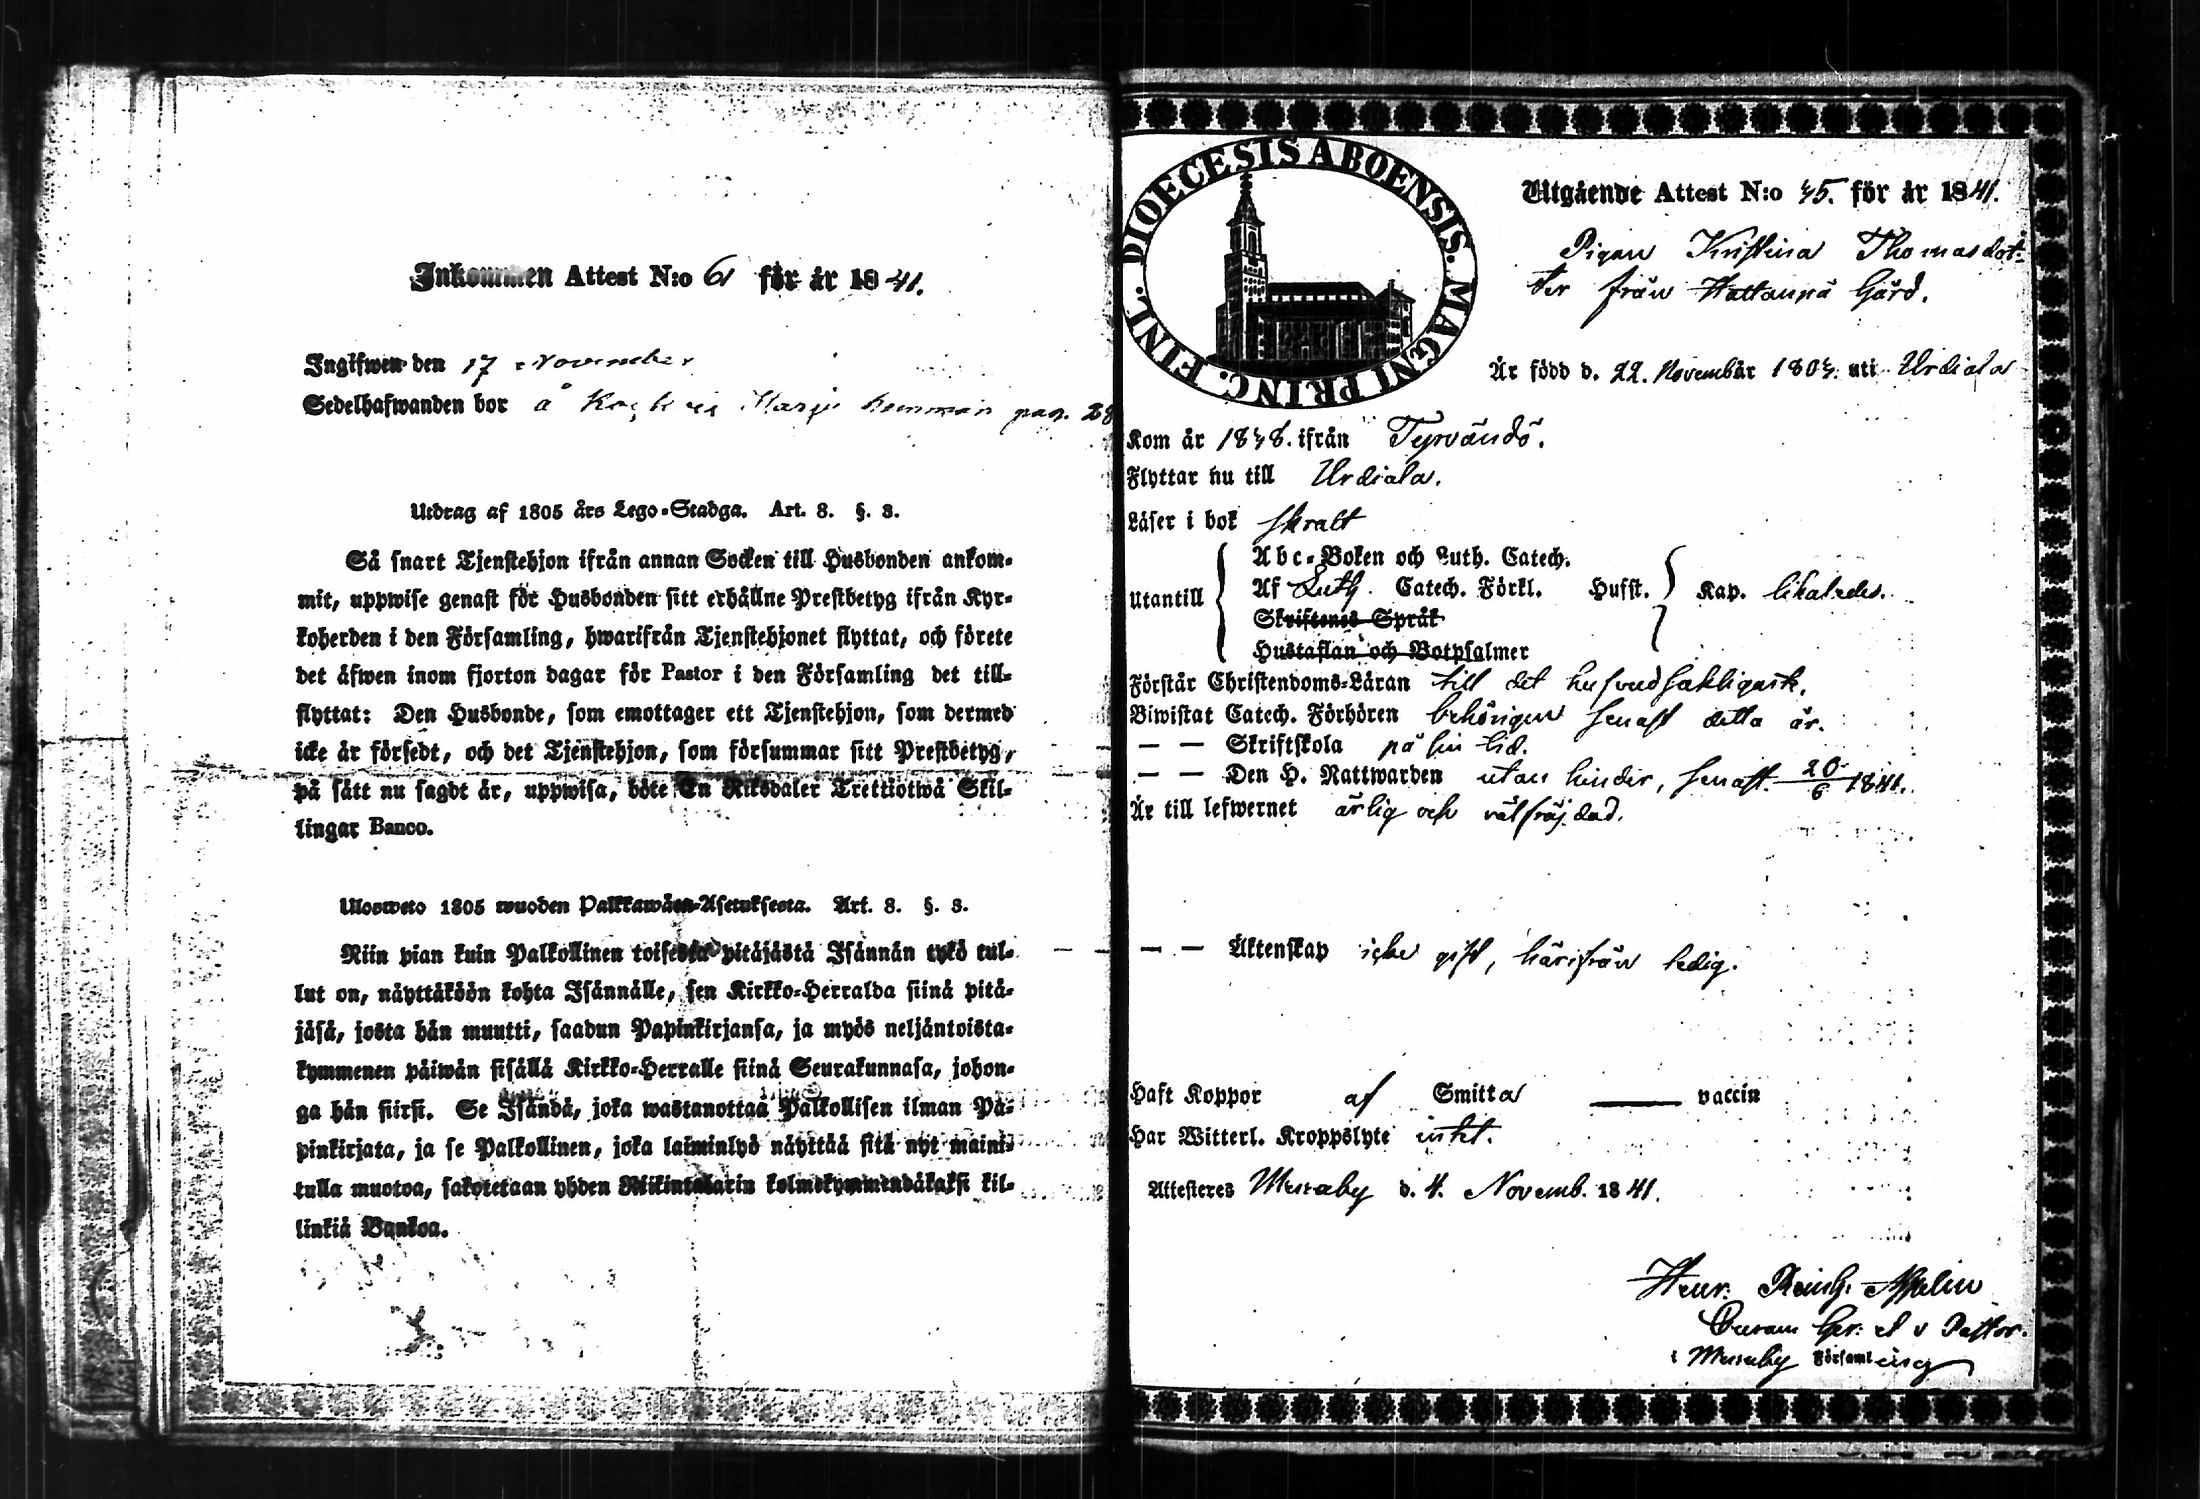 Inkommen Attest N:o 61 för år 1841.
Ingifwen den 17 November
Sedelhafwanden bor å hemman pag. 28
Utdrag af 1805 års Lego-Stadga. Art. 8. §. 3.
Så snart Tjenstehjon ifrån annan Socken till Husbonden ankom-
mit, uppwise genast för Husbonden sitt erhållne Prestbetyg ifrån Kyr-
koherden i den Församling, hwarifrån Tjenstehjonet flyttat, och förete
det äfwen inom fjorton dagar för Pastor i den Församling det till-
flyttat: Den Husbonde, som emottager ett Tjenstehjon, som dermed
icke är försedt, och det Tjenstehjon, som försummar sitt Prestbetyg,
på sätt nu sagdt är, uppwisa, böte En Riksdaler Trettiotwå Skil-
lingar Banco.
Ulosweto 1805 wuoden Palkkawäen-Asetuksesta. Art. 8. §. 3.
Niin pian kuin Palkollinen toisesta pitäjästä Isännän tykö tul-
lut on, näyttäköön kohta Isännälle, sen Kirkko-Herralda siinä pitä-
jäsä, josta hän muutti, saadun Papinkirjansa, ja myös neljäntoista-
kymmenen päiwän sisällä Kirkko-Herralle siinä Seurakunnasa, johon-
ga hän siirsi. Se Isändä, joka wastanottaa Palkollisen ilman Pa-
pinkirjata, ja se Palkollinen, joka laiminlyö näyttää sitä nyt maini-
tulla muotoa, sakotetaan yhden Riikintalarin kolmekymmendäkaksi kil-
linkiä Bankoa.
DIOECESIS ABOENSIS. MAGNI PRINC. FINL.
Utgående Attest N:o 45. för år 1841.
Pigan Kristina Thomasdot-
ter från Hattanpä Gård.
Är född d. 22. Novembär 1804. uti Urdiala
Kom år 1838. ifrån Tyrvändö.
Flyttar nu till Urdiala.
Läser i bok skralt
Utantill
Abc-Boken och Luth. Catech.
Af Luth. Catech. Förkl. Husst. Kap. likaledes.
Skriftenes Språk
Hustaflan och Botpsalmer
Förstår Christendoms-Läran till det hufvudsakligaste.
Biwistat Catech. Förhören behörigen senast detta år.
— — Skriftskola på sin tid.
— — Den H. Nattwarden utan hinder, senast 20/6 1841.
Är till lefwernet ärlig och välfräjdad.
— — Äktenskap icke gift, härifrån ledig.
Haft Koppor af Smitta — vaccin
Har Witterl. Kroppslyte intet.
Attesteres Messuby d. 4. Novemb. 1841.
Henr.
v Pastor.
i Messuby Församling